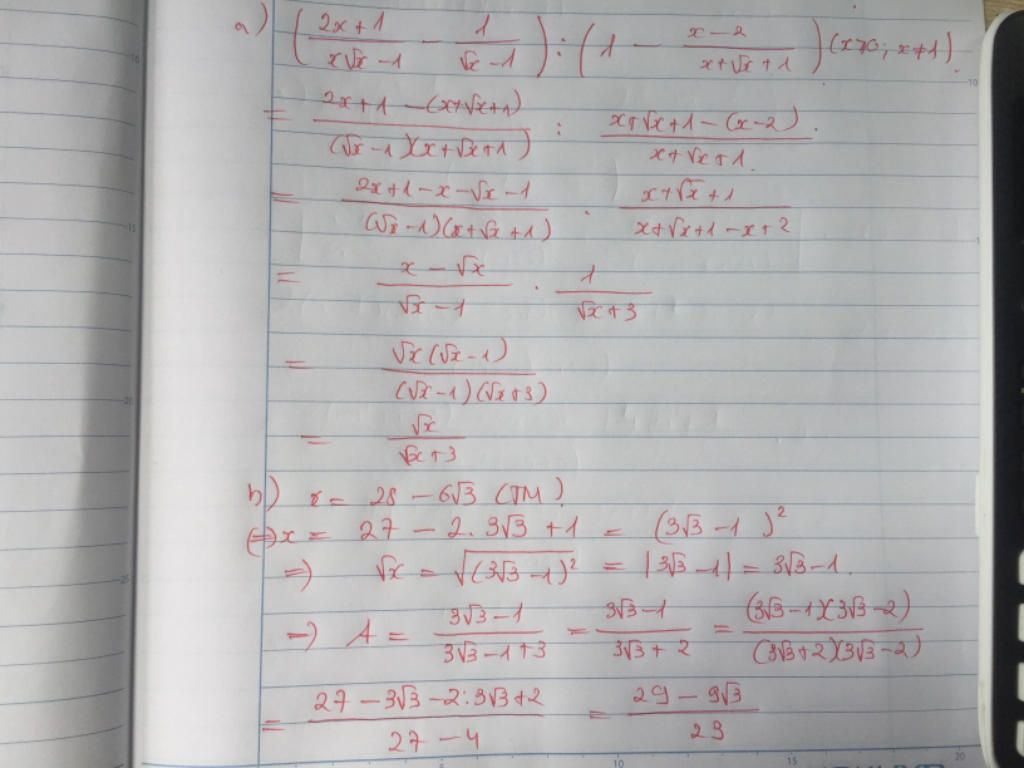 a) ( (2x+1)/(x√x −1) − 1/(√x −1) ) : ( 1 − (x−2)/(x+√x+1) ) (x>0; x≠1).
= (2x+1 −(x+√x+1))/((√x −1)(x+√x+1)) : (x+√x+1−(x−2))/(x+√x+1).
= (2x+1−x−√x −1)/((√x −1)(x+√x+1)) . (x+√x+1)/(x+√x+1−x+2)
= (x−√x)/(√x −1) . 1/(√x+3)
= (√x(√x −1))/((√x −1)(√x+3))
= √x/(√x+3)
b) x = 28 − 6√3 (TM)
(=) x = 27 − 2.3√3 +1 = (3√3 −1)²
=) √x = √((3√3 −1)²) = |3√3 −1| = 3√3 −1.
=) A = (3√3 −1)/(3√3 −1+3) = (3√3 −1)/(3√3 + 2) = ((3√3 −1)(3√3 −2))/((3√3+2)(3√3 −2))
= (27 − 3√3 −2.3√3+2)/(27 − 4) = (29 − 9√3)/23